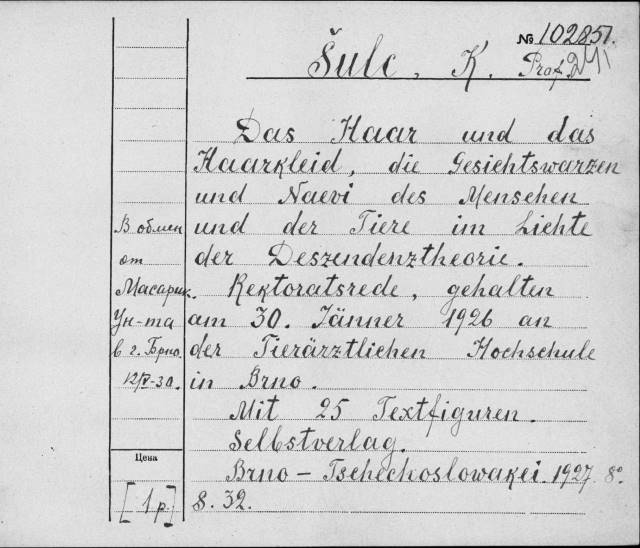 № 102851.
Šulc, K. Prof. Dr.
Das Haar und das
Haarkleid, die Gesichtswarzen
und Naevi des Menschen
und der Tiere im Lichte
der Deszendenztheorie.
Rektoratsrede, gehalten
am 30. Jänner 1926 an
der Tierärztlichen Hochschule
in Brno.
Mit 25 Textfiguren.
Selbstverlag.
Brno – Tschechoslowakei. 1927. 8°
S. 32.
В обмен
от
Масарик.
Ун-та
в г. Брно.
12/V-30.
Цена
[1 р.]